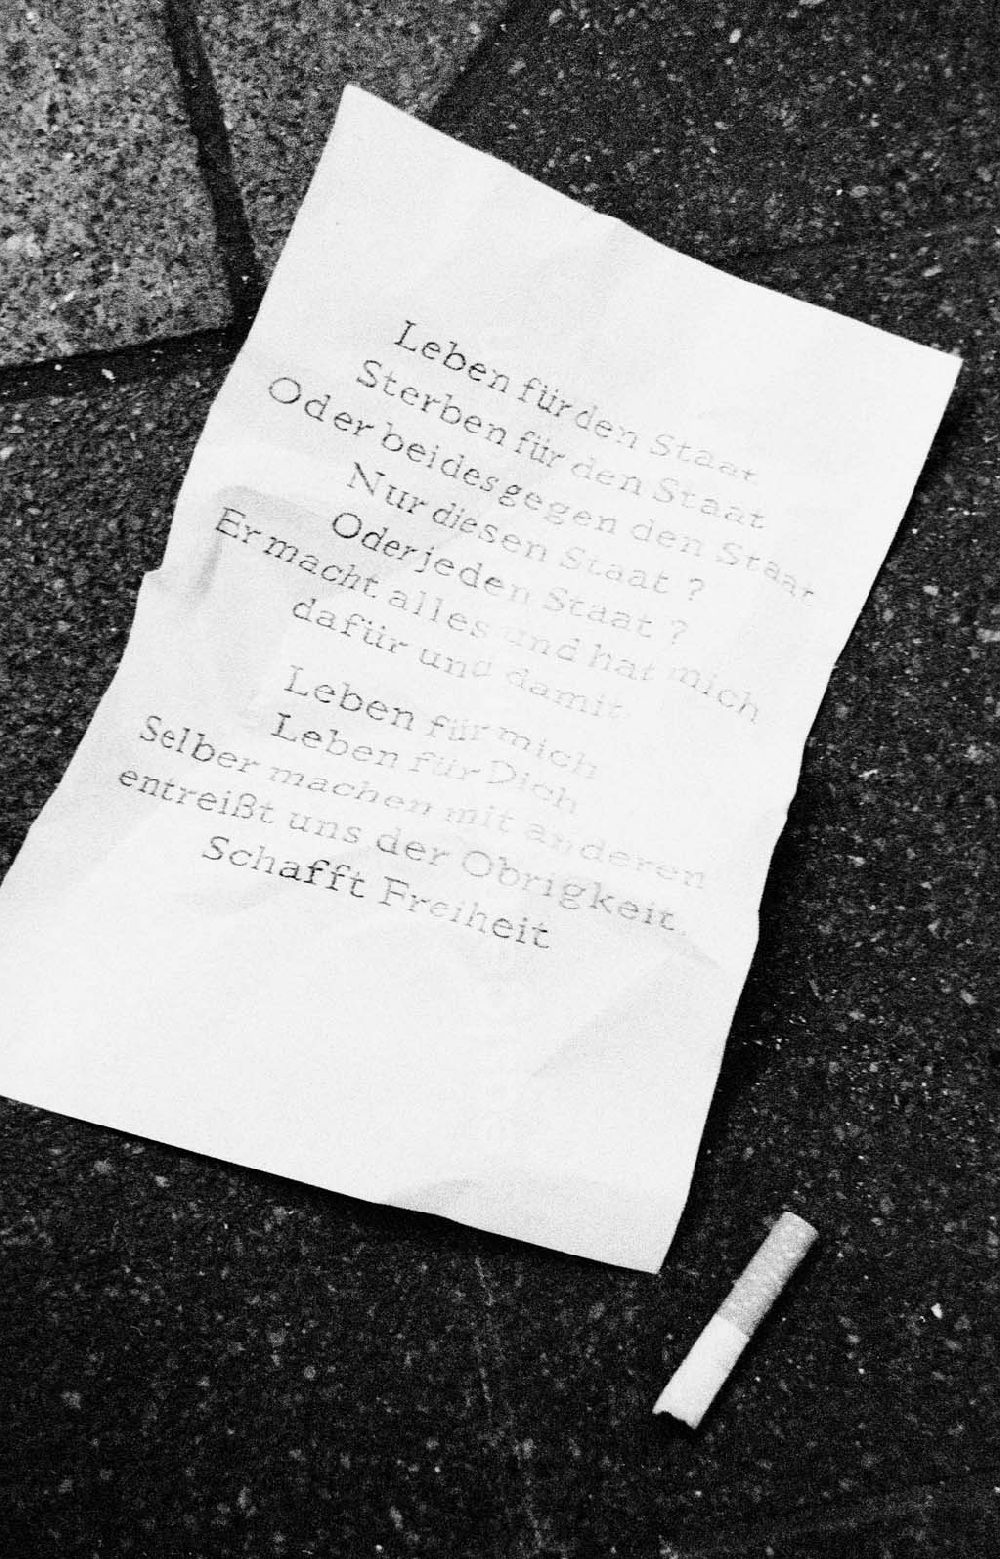 Leben für den Staat
Sterben für den Staat
Oder beides gegen den Staat
Nur diesen Staat ?
Oder jeden Staat ?
Er macht alles und hat mich
dafür und damit
Leben für mich
Leben für Dich
Selber machen mit anderen
entreißt uns der Obrigkeit
Schafft Freiheit